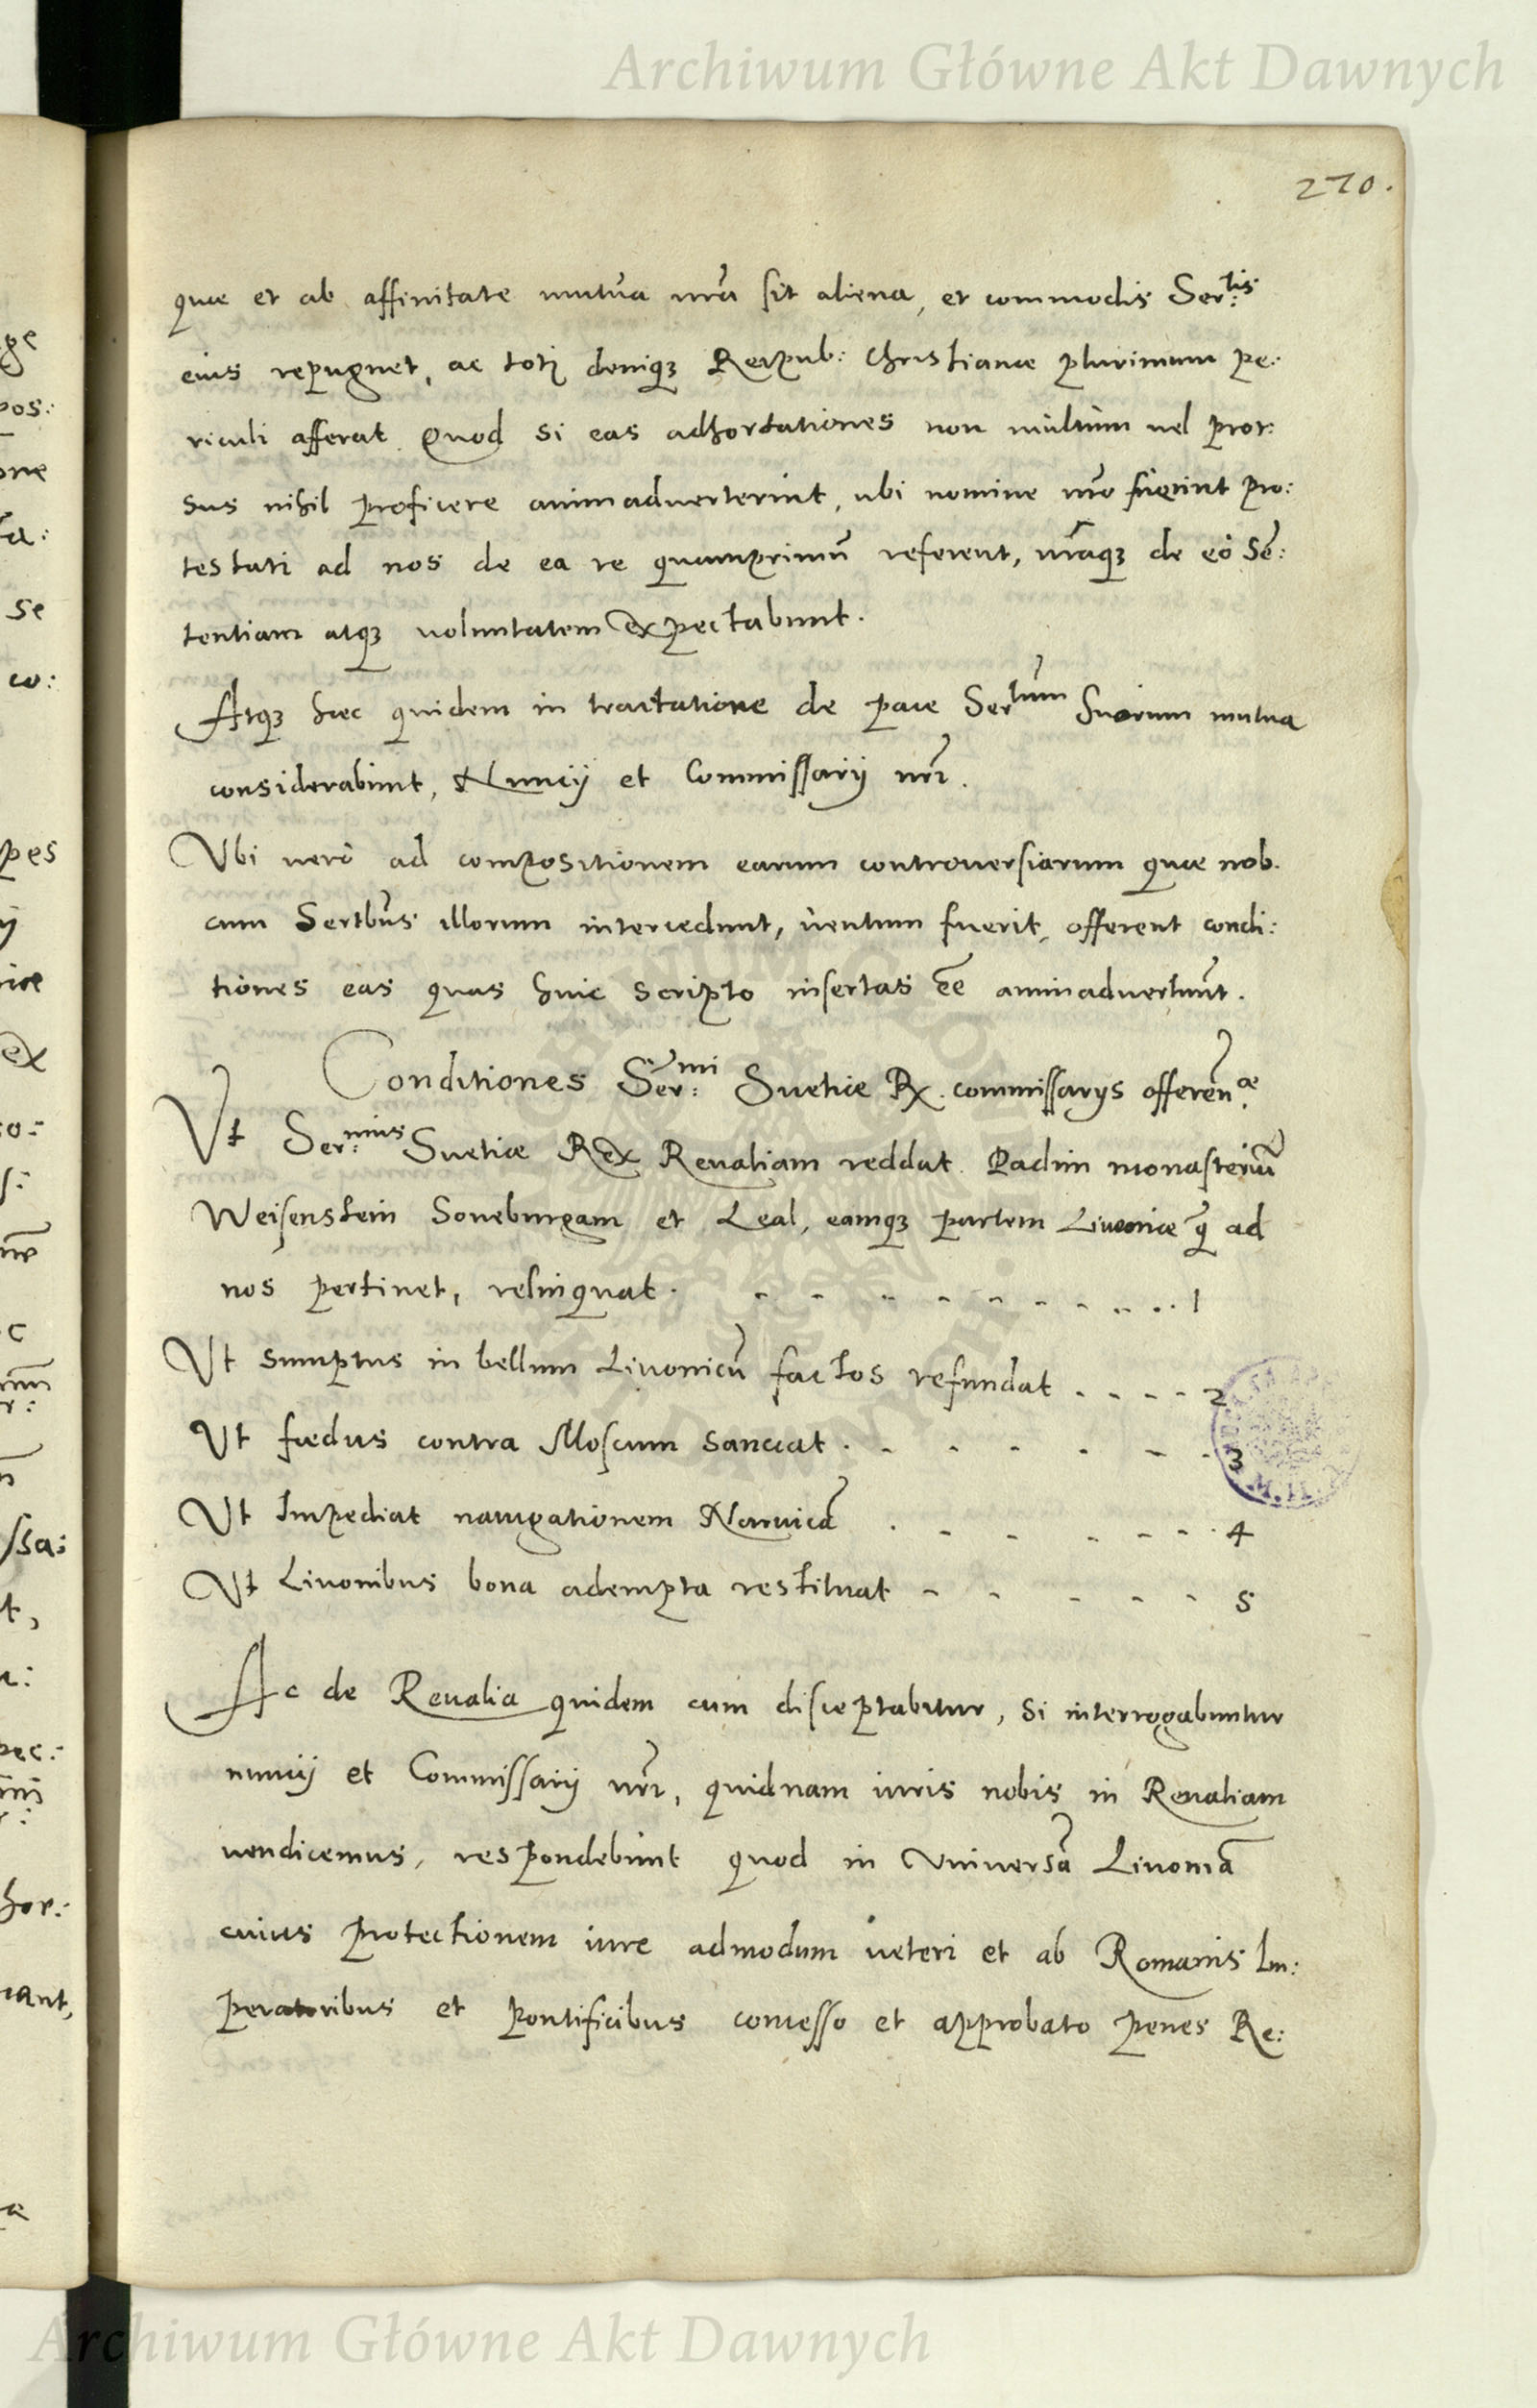 Archiwum Główne Akt Dawnych
270.
quae et ab affinitate mutua nr̃a sit aliena, et commodis Ser:tis
eius repugnet, ac toti deniq3 Reipub: Christianae plurimum pe:
riculi afferat. Quod si eas adhortationes non multum uel pror:
sus nihil proficere animaduerterint, ubi nomine nr̃o fuerint pro:
testati ad nos de ea re quamprimũ referent, nr̃amq3 de eò Sẽ:
tentiam atq3 uoluntatem expectabunt.
Atq3 haec quidem in tractatione de pace Sertum Suarum mutua
considerabunt, Nuncij et Commissarij nr̃i.
Vbi uerò ad compositionem earum controuersiarum quae nob.
cum Sertbus illorum intercedunt, uentum fuerit, offerent condi:
tiones eas quas huic scripto insertas ẽe animaduertunt.
Conditiones Ser:mi Suetiae Rx. commissarys offeren:ae
Vt Ser:mus Suetiae Rex Reualiam reddat. Padim monasteriũ
Weisenstein Soneburgam et Leal, eamq3 partem Liuoniae q̃ ad
nos pertinet, relinquat. - - - - - - - - . . 1
Vt sumptus in bellum Liuonicũ factos refundat . - - - - 2
Vt foedus contra Moscum sanciat . - - - - - - 3
Vt Impediat nauigationem Naruicã . - - - - - . 4
Vt Liuonibus bona adempta restituat - - - - - 5
Ac de Reualia quidem cum disceptabitur, si interrogabuntur
nuncij et Commissarij nr̃i, quidnam iuris nobis in Reualiam
uendicemus, respondebunt quod in Vniuersã Liuoniã
cuius protectionem iure admodum ueteri et ab Romanis Im:
peratoribus et Pontificibus concesso et approbato penes Re:
Archiwum Główne Akt Dawnych